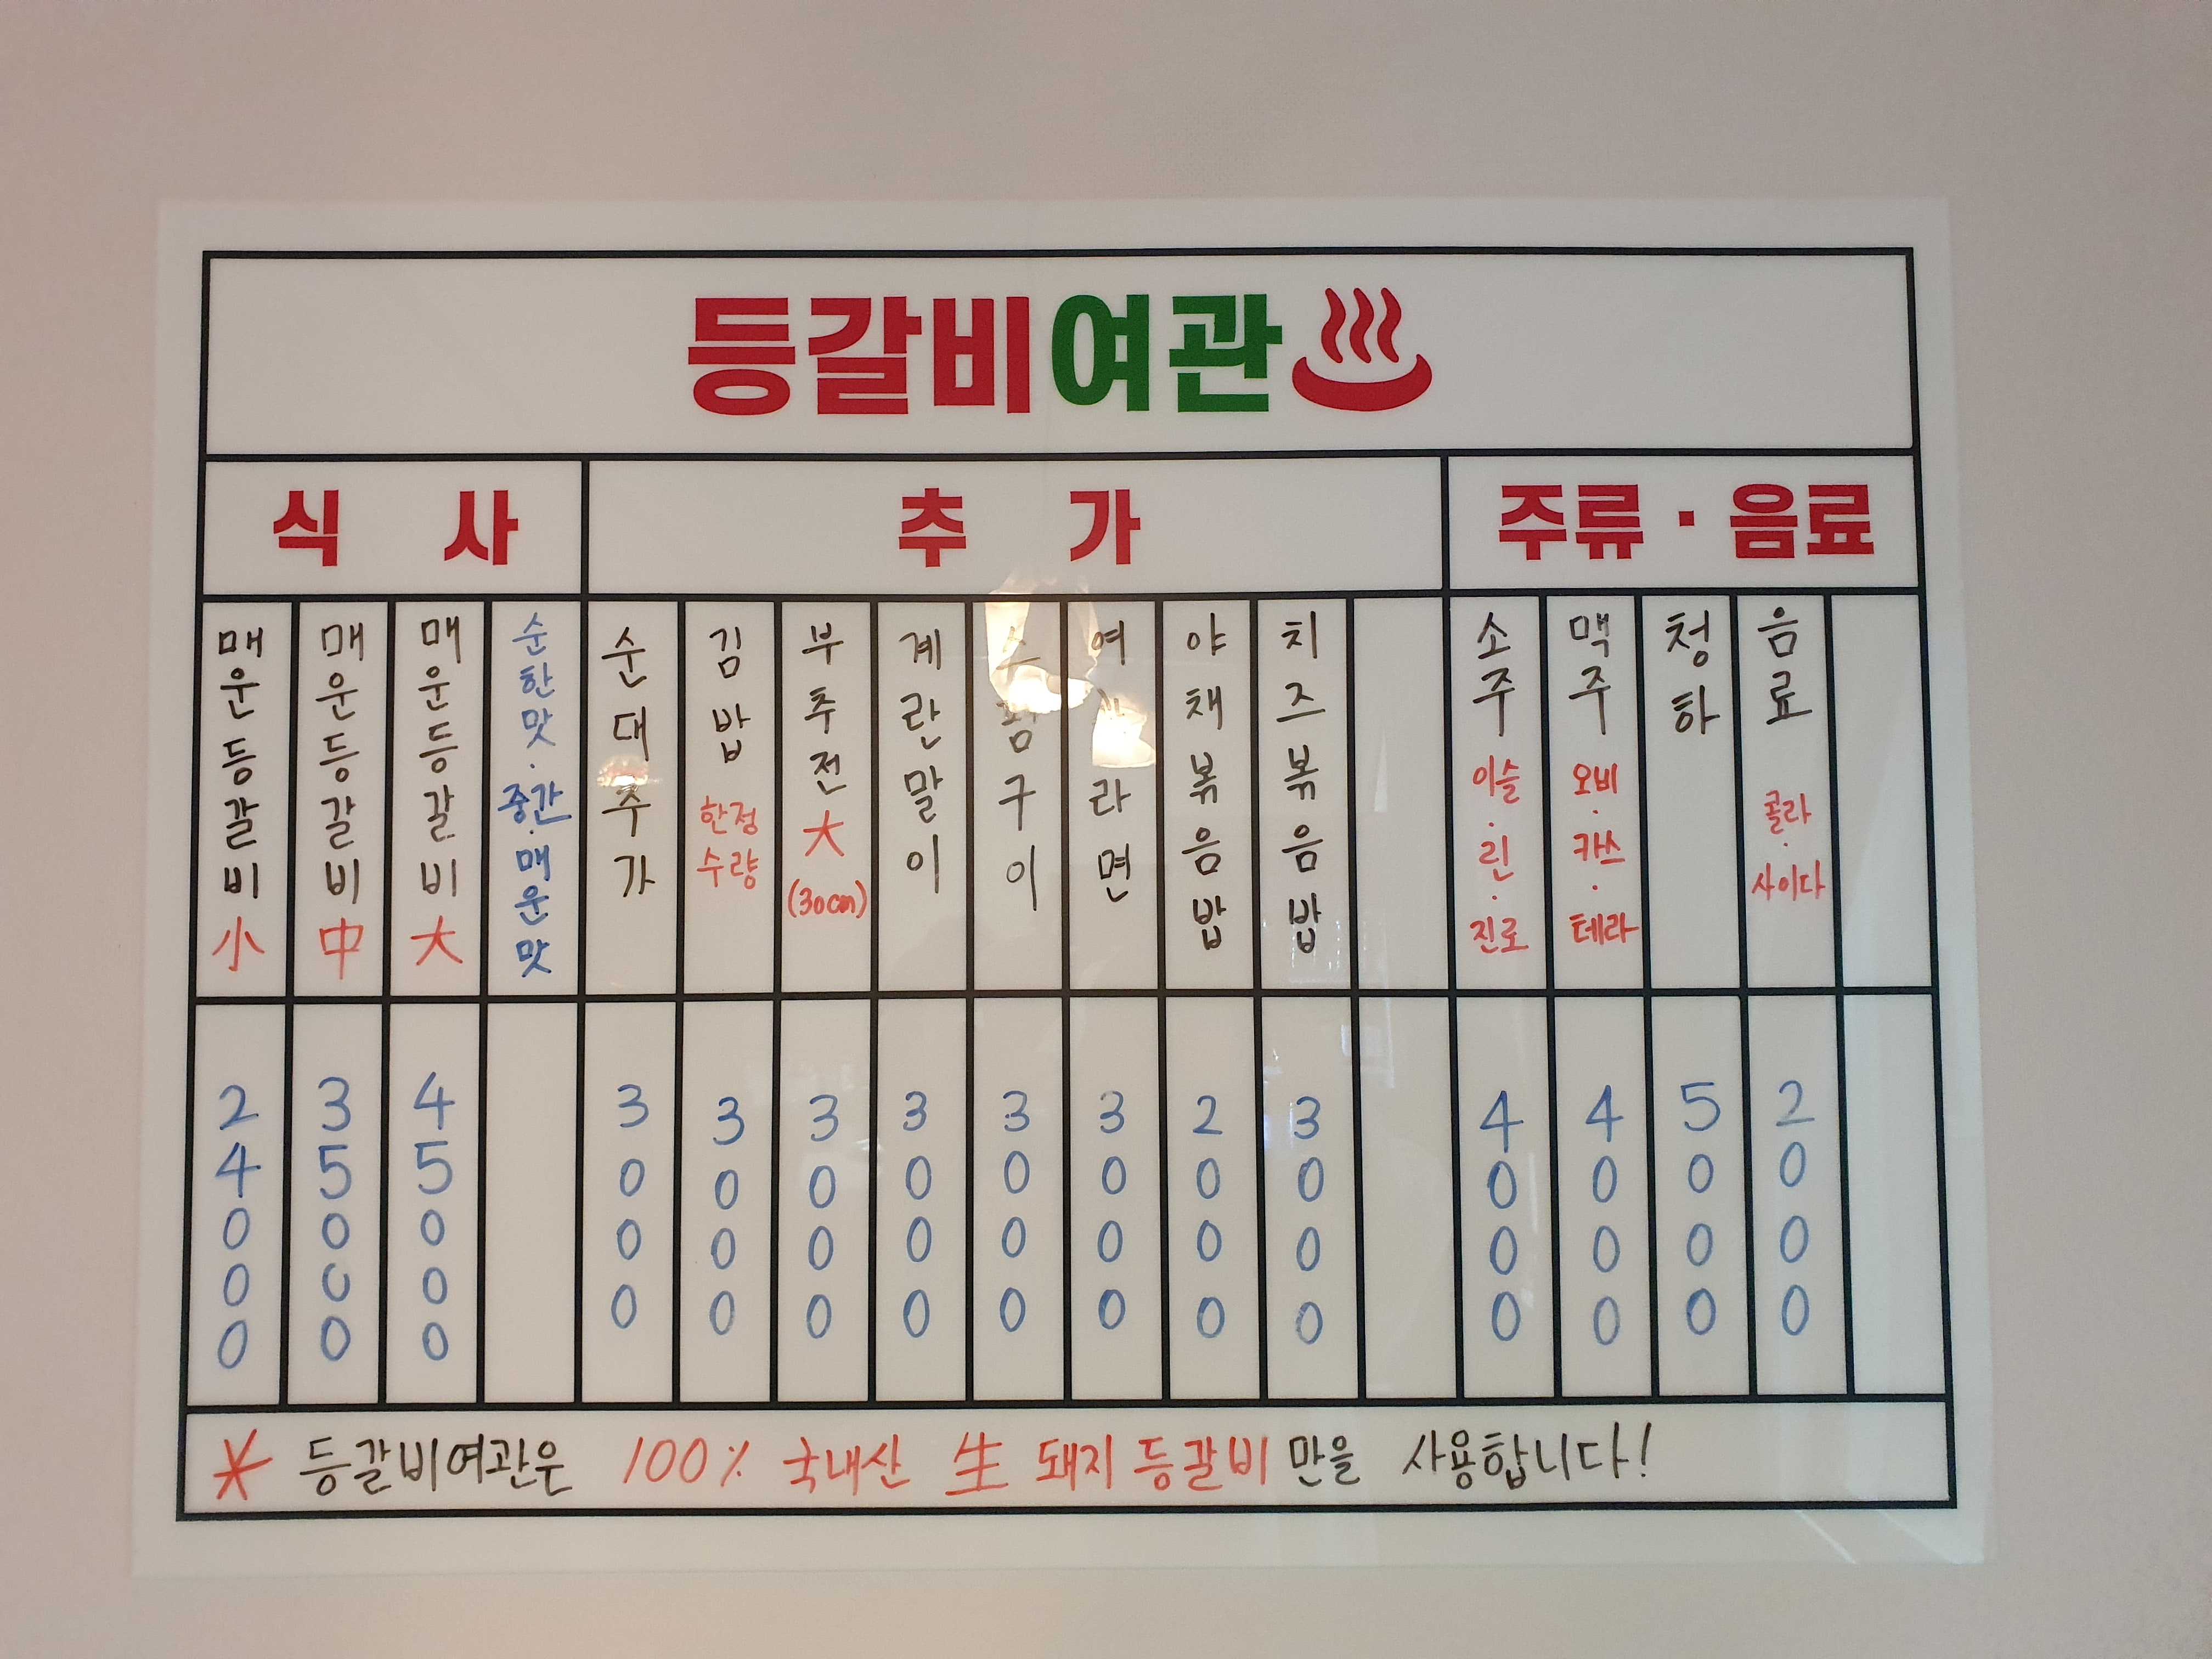 등갈비여관
식 사
추 가
주류·음료
매운등갈비 小
매운등갈비 中
매운등갈비 大
순한맛·중간·매운맛
순대추가
김밥 한정수량
부추전 大 (30cm)
계란말이
구이
라면
야채볶음밥
치즈볶음밥
소주 이슬·린·진로
맥주 오비·카스·테라
청하
음료 콜라·사이다
24000
35000
45000
3000
3000
3000
3000
3000
3000
2000
3000
4000
4000
5000
2000
* 등갈비여관은 100% 국내산 生 돼지등갈비만을 사용합니다!